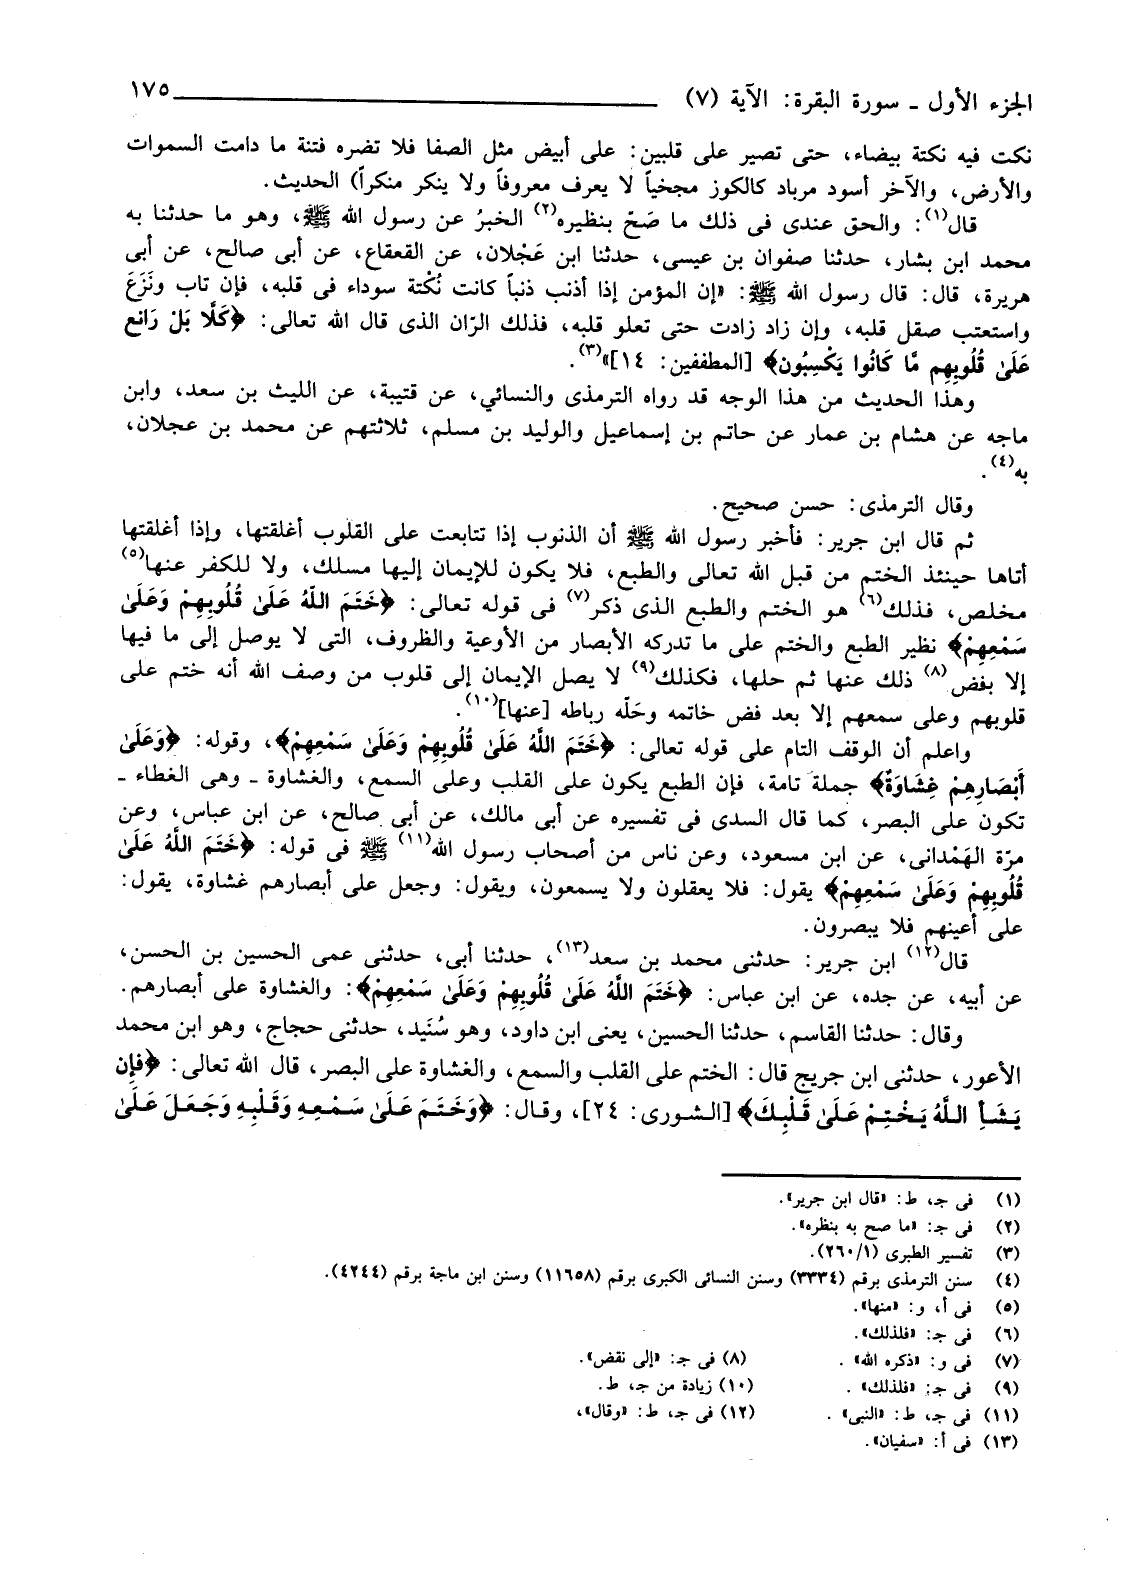 الجزء الأول ـ سورة البقرة: الآية (٧) ١٧٥
نكت فيه نكتة بيضاء، حتى تصير على قلبين: على أبيض مثل الصفا فلا تضره فتنة ما دامت السموات
والأرض، والآخر أسود مرباد كالكوز مجخياً لا يعرف معروفاً ولا ينكر منكراً) الحديث.
قال(١): والحق عندى فى ذلك ما صَحّ بنظيره(٢) الخبرُ عن رسول الله ﷺ، وهو ما حدثنا به
محمد ابن بشار، حدثنا صفوان بن عيسى، حدثنا ابن عَجْلان، عن القعقاع، عن أبى صالح، عن أبى
هريرة، قال: قال رسول الله ﷺ: «إن المؤمن إذا أذنب ذنباً كانت نُكْتة سوداء فى قلبه، فإن تاب ونَزَعَ
واستعتب صقل قلبه، وإن زاد زادت حتى تعلو قلبه، فذلك الرّان الذى قال الله تعالى: ﴿كَلَّا بَلْ رَانَ
عَلَىٰ قُلُوبِهِم مَّا كَانُوا يَكْسِبُونَ﴾ [المطففين: ١٤]»(٣).
وهذا الحديث من هذا الوجه قد رواه الترمذى والنسائي، عن قتيبة، عن الليث بن سعد، وابن
ماجه عن هشام بن عمار عن حاتم بن إسماعيل والوليد بن مسلم، ثلاثتهم عن محمد بن عجلان،
به(٤).
وقال الترمذى: حسن صحيح.
ثم قال ابن جرير: فأخبر رسول الله ﷺ أن الذنوب إذا تتابعت على القلوب أغلقتها، وإذا أغلقتها
أتاها حينئذ الختم من قبل الله تعالى والطبع، فلا يكون للإيمان إليها مسلك، ولا للكفر عنها(٥)
مخلص، فذلك(٦) هو الختم والطبع الذى ذكر(٧) فى قوله تعالى: ﴿خَتَمَ اللَّهُ عَلَىٰ قُلُوبِهِمْ وَعَلَىٰ
سَمْعِهِمْ﴾ نظير الطبع والختم على ما تدركه الأبصار من الأوعية والظروف، التى لا يوصل إلى ما فيها
إلا بفض(٨) ذلك عنها ثم حلها، فكذلك(٩) لا يصل الإيمان إلى قلوب من وصف الله أنه ختم على
قلوبهم وعلى سمعهم إلا بعد فض خاتمه وحَلّه رباطه [عنها](١٠).
واعلم أن الوقف التام على قوله تعالى: ﴿خَتَمَ اللَّهُ عَلَىٰ قُلُوبِهِمْ وَعَلَىٰ سَمْعِهِمْ﴾، وقوله: ﴿وَعَلَىٰ
أَبْصَارِهِمْ غِشَاوَةٌ﴾ جملة تامة، فإن الطبع يكون على القلب وعلى السمع، والغشاوة ـ وهى الغطاء ـ
تكون على البصر، كما قال السدى فى تفسيره عن أبى مالك، عن أبى صالح، عن ابن عباس، وعن
مرّة الهَمْدانى، عن ابن مسعود، وعن ناس من أصحاب رسول الله(١١) ﷺ فى قوله: ﴿خَتَمَ اللَّهُ عَلَىٰ
قُلُوبِهِمْ وَعَلَىٰ سَمْعِهِمْ﴾ يقول: فلا يعقلون ولا يسمعون، ويقول: وجعل على أبصارهم غشاوة، يقول:
على أعينهم فلا يبصرون.
قال(١٢) ابن جرير: حدثنى محمد بن سعد(١٣)، حدثنا أبى، حدثنى عمى الحسين بن الحسن،
عن أبيه، عن جده، عن ابن عباس: ﴿خَتَمَ اللَّهُ عَلَىٰ قُلُوبِهِمْ وَعَلَىٰ سَمْعِهِمْ﴾: والغشاوة على أبصارهم.
وقال: حدثنا القاسم، حدثنا الحسين، يعنى ابن داود، وهو سُنَيد، حدثنى حجاج، وهو ابن محمد
الأعور، حدثنى ابن جريج قال: الختم على القلب والسمع، والغشاوة على البصر، قال الله تعالى: ﴿فَإِن
يَشَأِ اللَّهُ يَخْتِمْ عَلَىٰ قَلْبِكَ﴾ [الشورى: ٢٤]، وقال: ﴿وَخَتَمَ عَلَىٰ سَمْعِهِ وَقَلْبِهِ وَجَعَلَ عَلَىٰ
(١) فى جـ، ط: «قال ابن جرير».
(٢) فى جـ: «ما صح به بنظره».
(٣) تفسير الطبرى (٢٦٠/١).
(٤) سنن الترمذى برقم (٣٣٣٤) وسنن النسائى الكبرى برقم (١١٦٥٨) وسنن ابن ماجة برقم (٤٢٤٤).
(٥) فى أ، و: «منها».
(٦) فى جـ: «فلذلك».
(٧) فى و: «ذكره الله». (٨) فى جـ: «إلى نقض».
(٩) فى جـ: «فلذلك». (١٠) زيادة من جـ، ط.
(١١) فى جـ، ط: «النبى». (١٢) فى جـ، ط: «وقال»،
(١٣) فى أ: «سفيان».